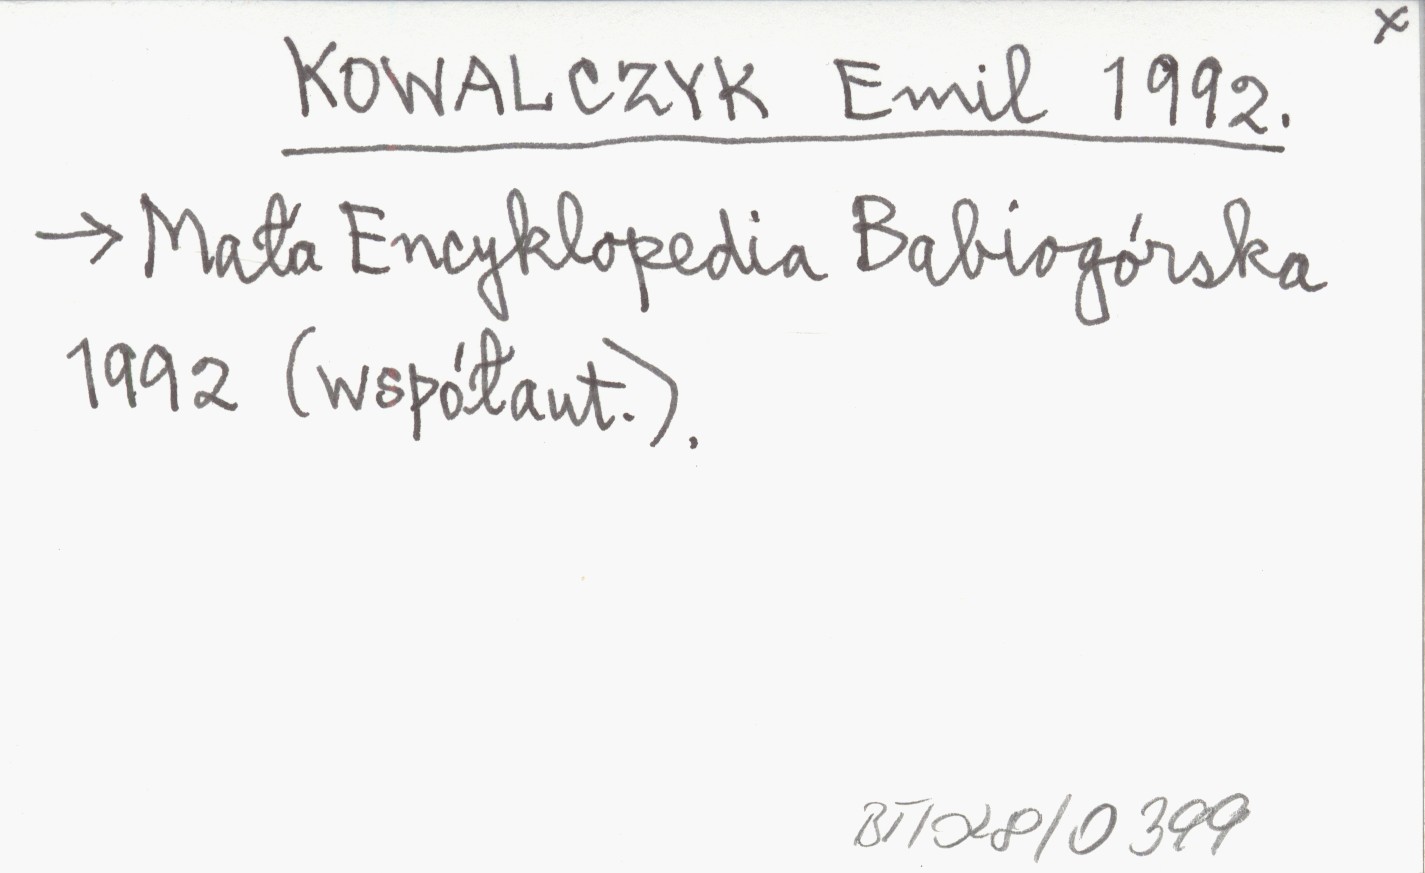 x
KOWALCZYK Emil 1992.
→ Mała Encyklopedia Babiogórska
1992 (współaut.).
0399